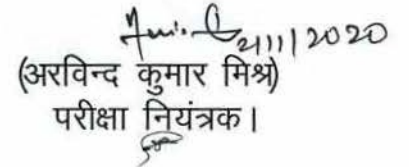 2/11/2020
(अरविन्द कुमार मिश्र)
परीक्षा नियंत्रक।